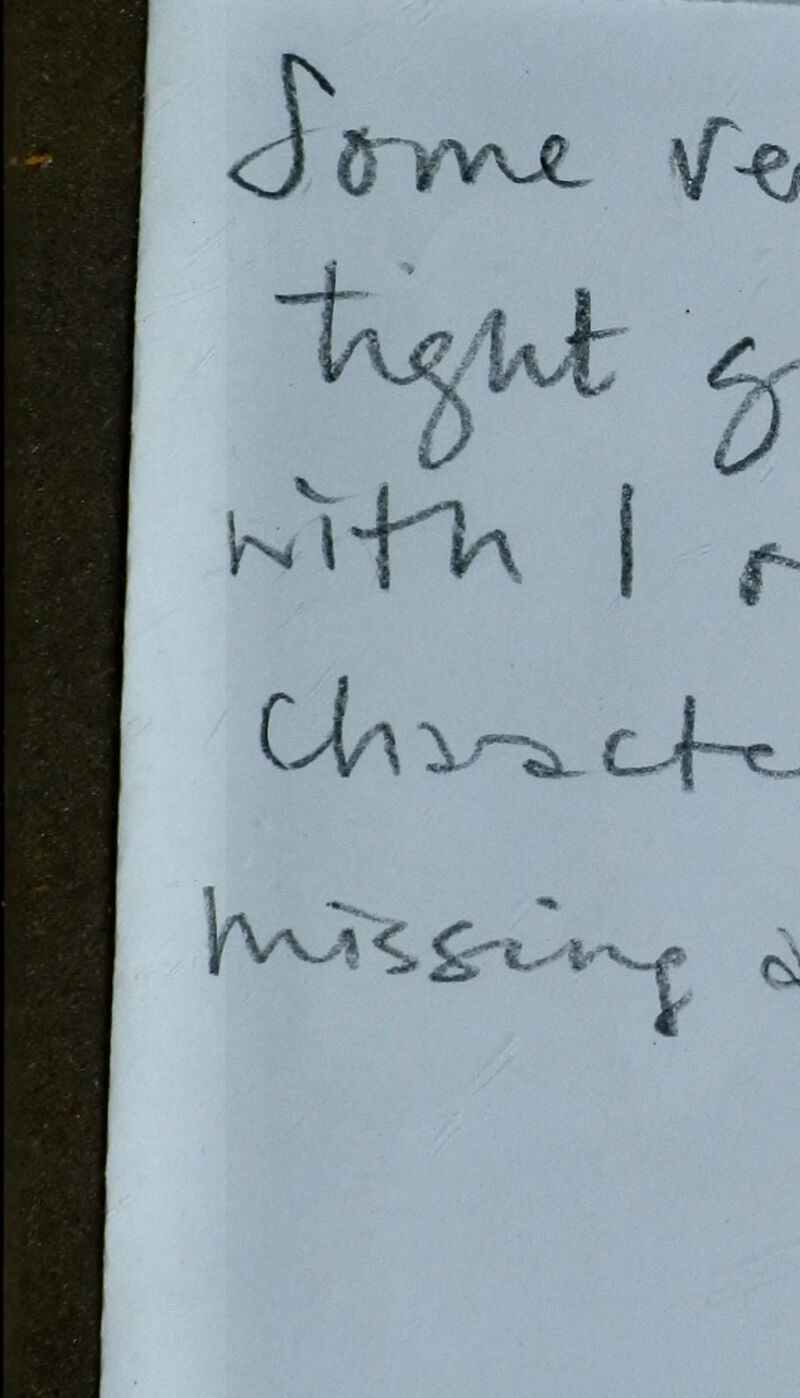 Some ve
tight g
with 1
characte
missing a